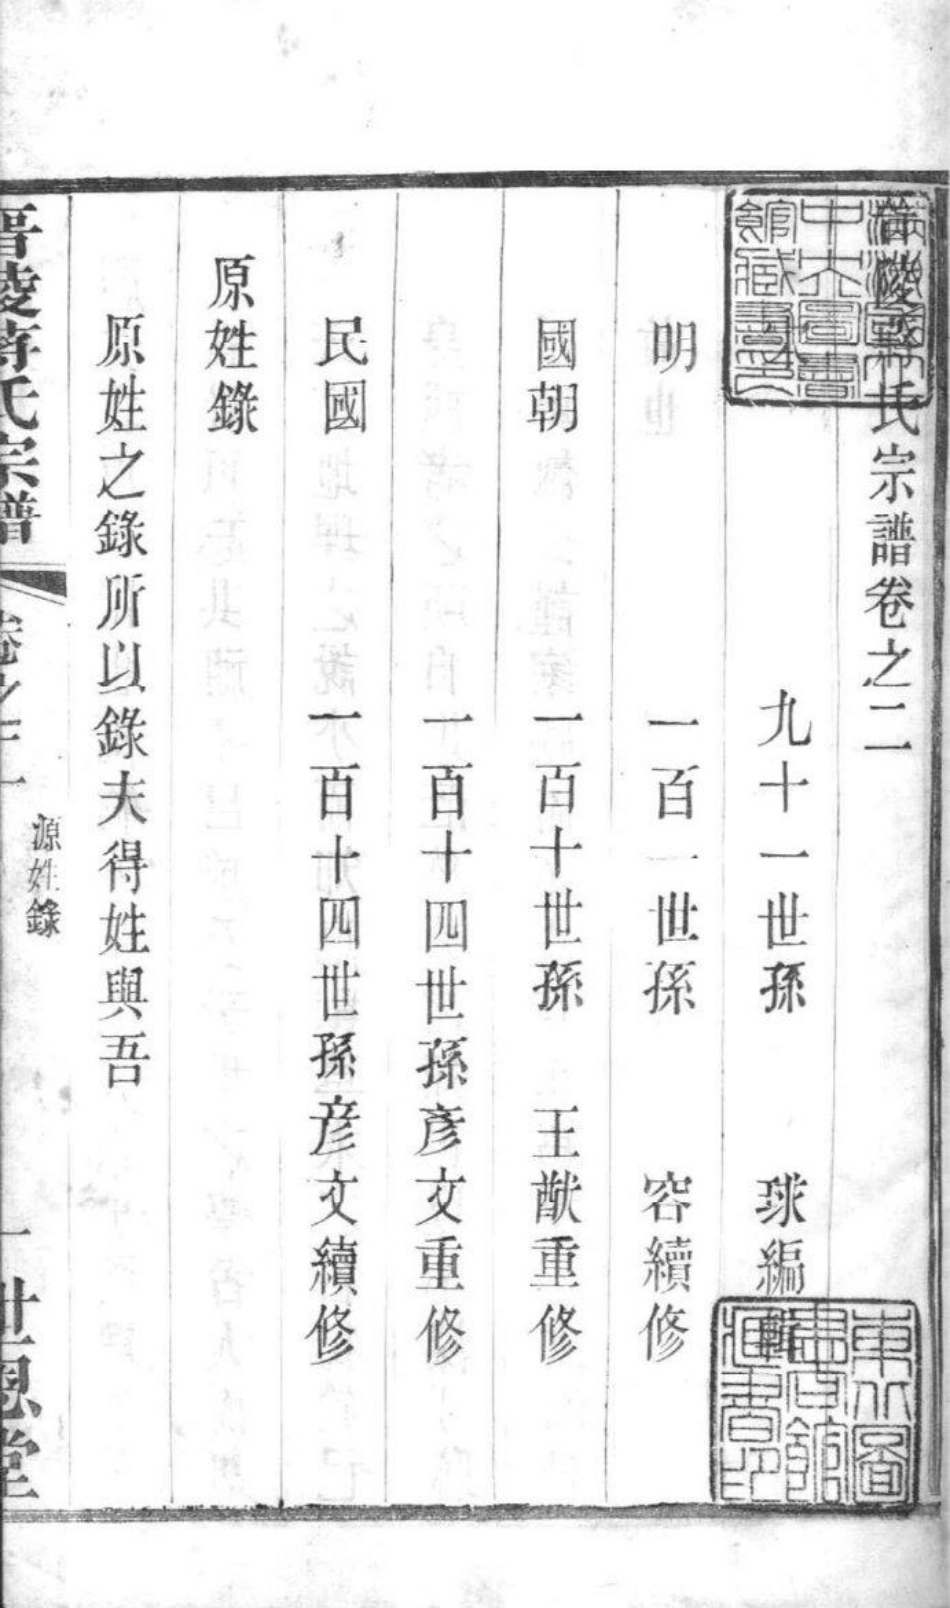 晋陵蔣氏宗譜卷之二
九十一世孫 球編輯
明 一百一世孫 容續修
國朝 一百十世孫 王猷重修
一百十四世孫彥文重修
民國 一百十四世孫彥文續修
原姓錄
原姓之錄所以錄夫得姓與吾
晋陵蔣氏宗譜 卷之二 源姓錄 一 世恩堂
東北圖書館藏書印